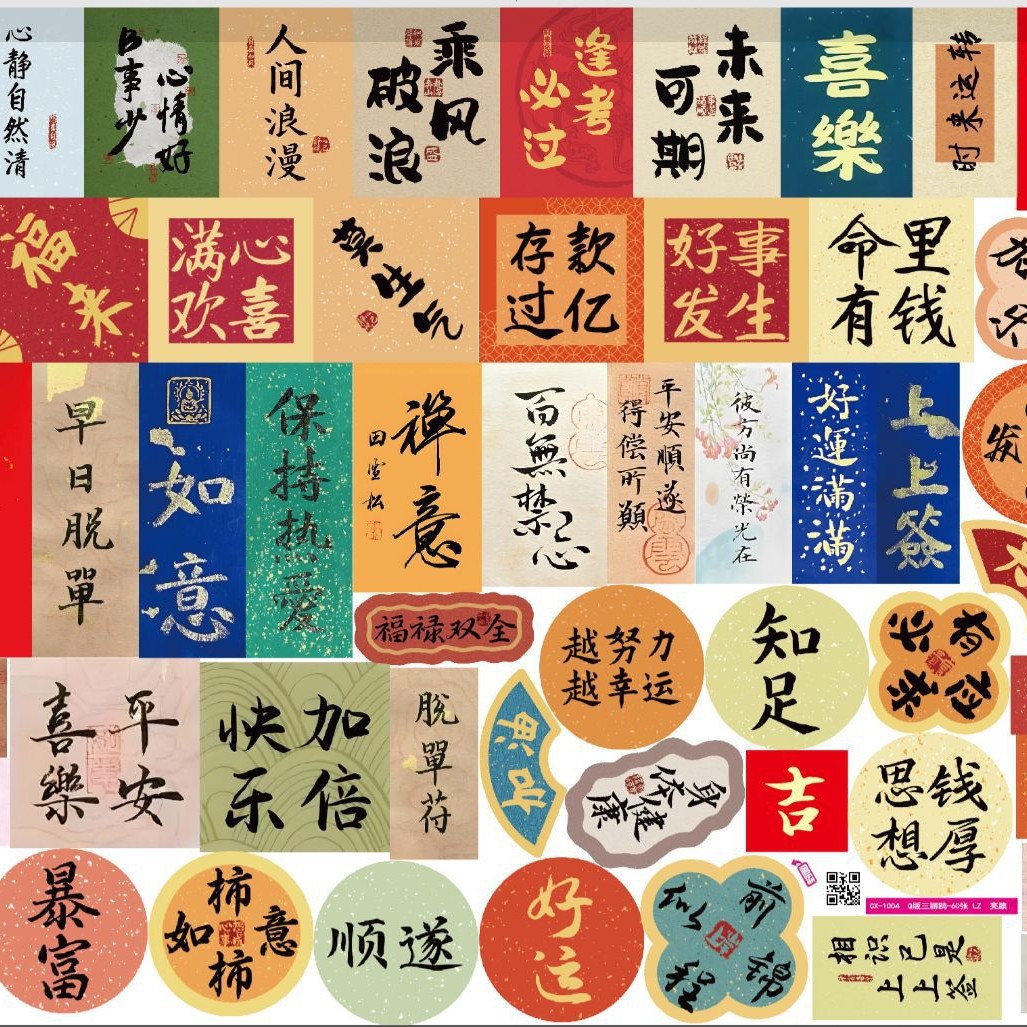 心静自然清
心情好
日事少
人间浪漫
乘风
破浪
逢考
必过
未来
可期
喜樂
时来运转
福来
满心
欢喜
莫生气
存款
过亿
好事
发生
命里
有钱
早日脱單
如意
保持热爱
禅意
田雪松
百無禁忌
平安順遂
得偿所願
彼方尚有榮光在
好運滿滿
上上簽
福禄双全
越努力
越幸运
知足
平安
喜樂
加倍
快乐
脫單符
身体健康
吉
钱厚
思想
暴富
柿柿如意
顺遂
好运
前程似锦
CX-1004 Q版三丽鸥-60张 LZ 亮膜
相识已是
上上签